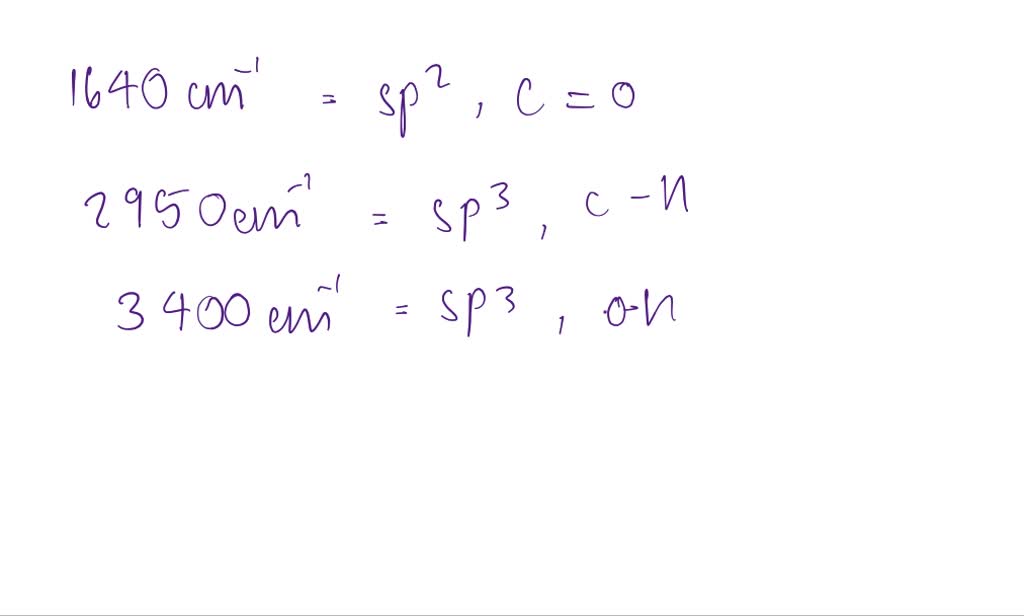 1640 cm⁻¹ = sp², C = O
2950 cm⁻¹ = sp³, C - H
3400 cm⁻¹ = sp3, O-H